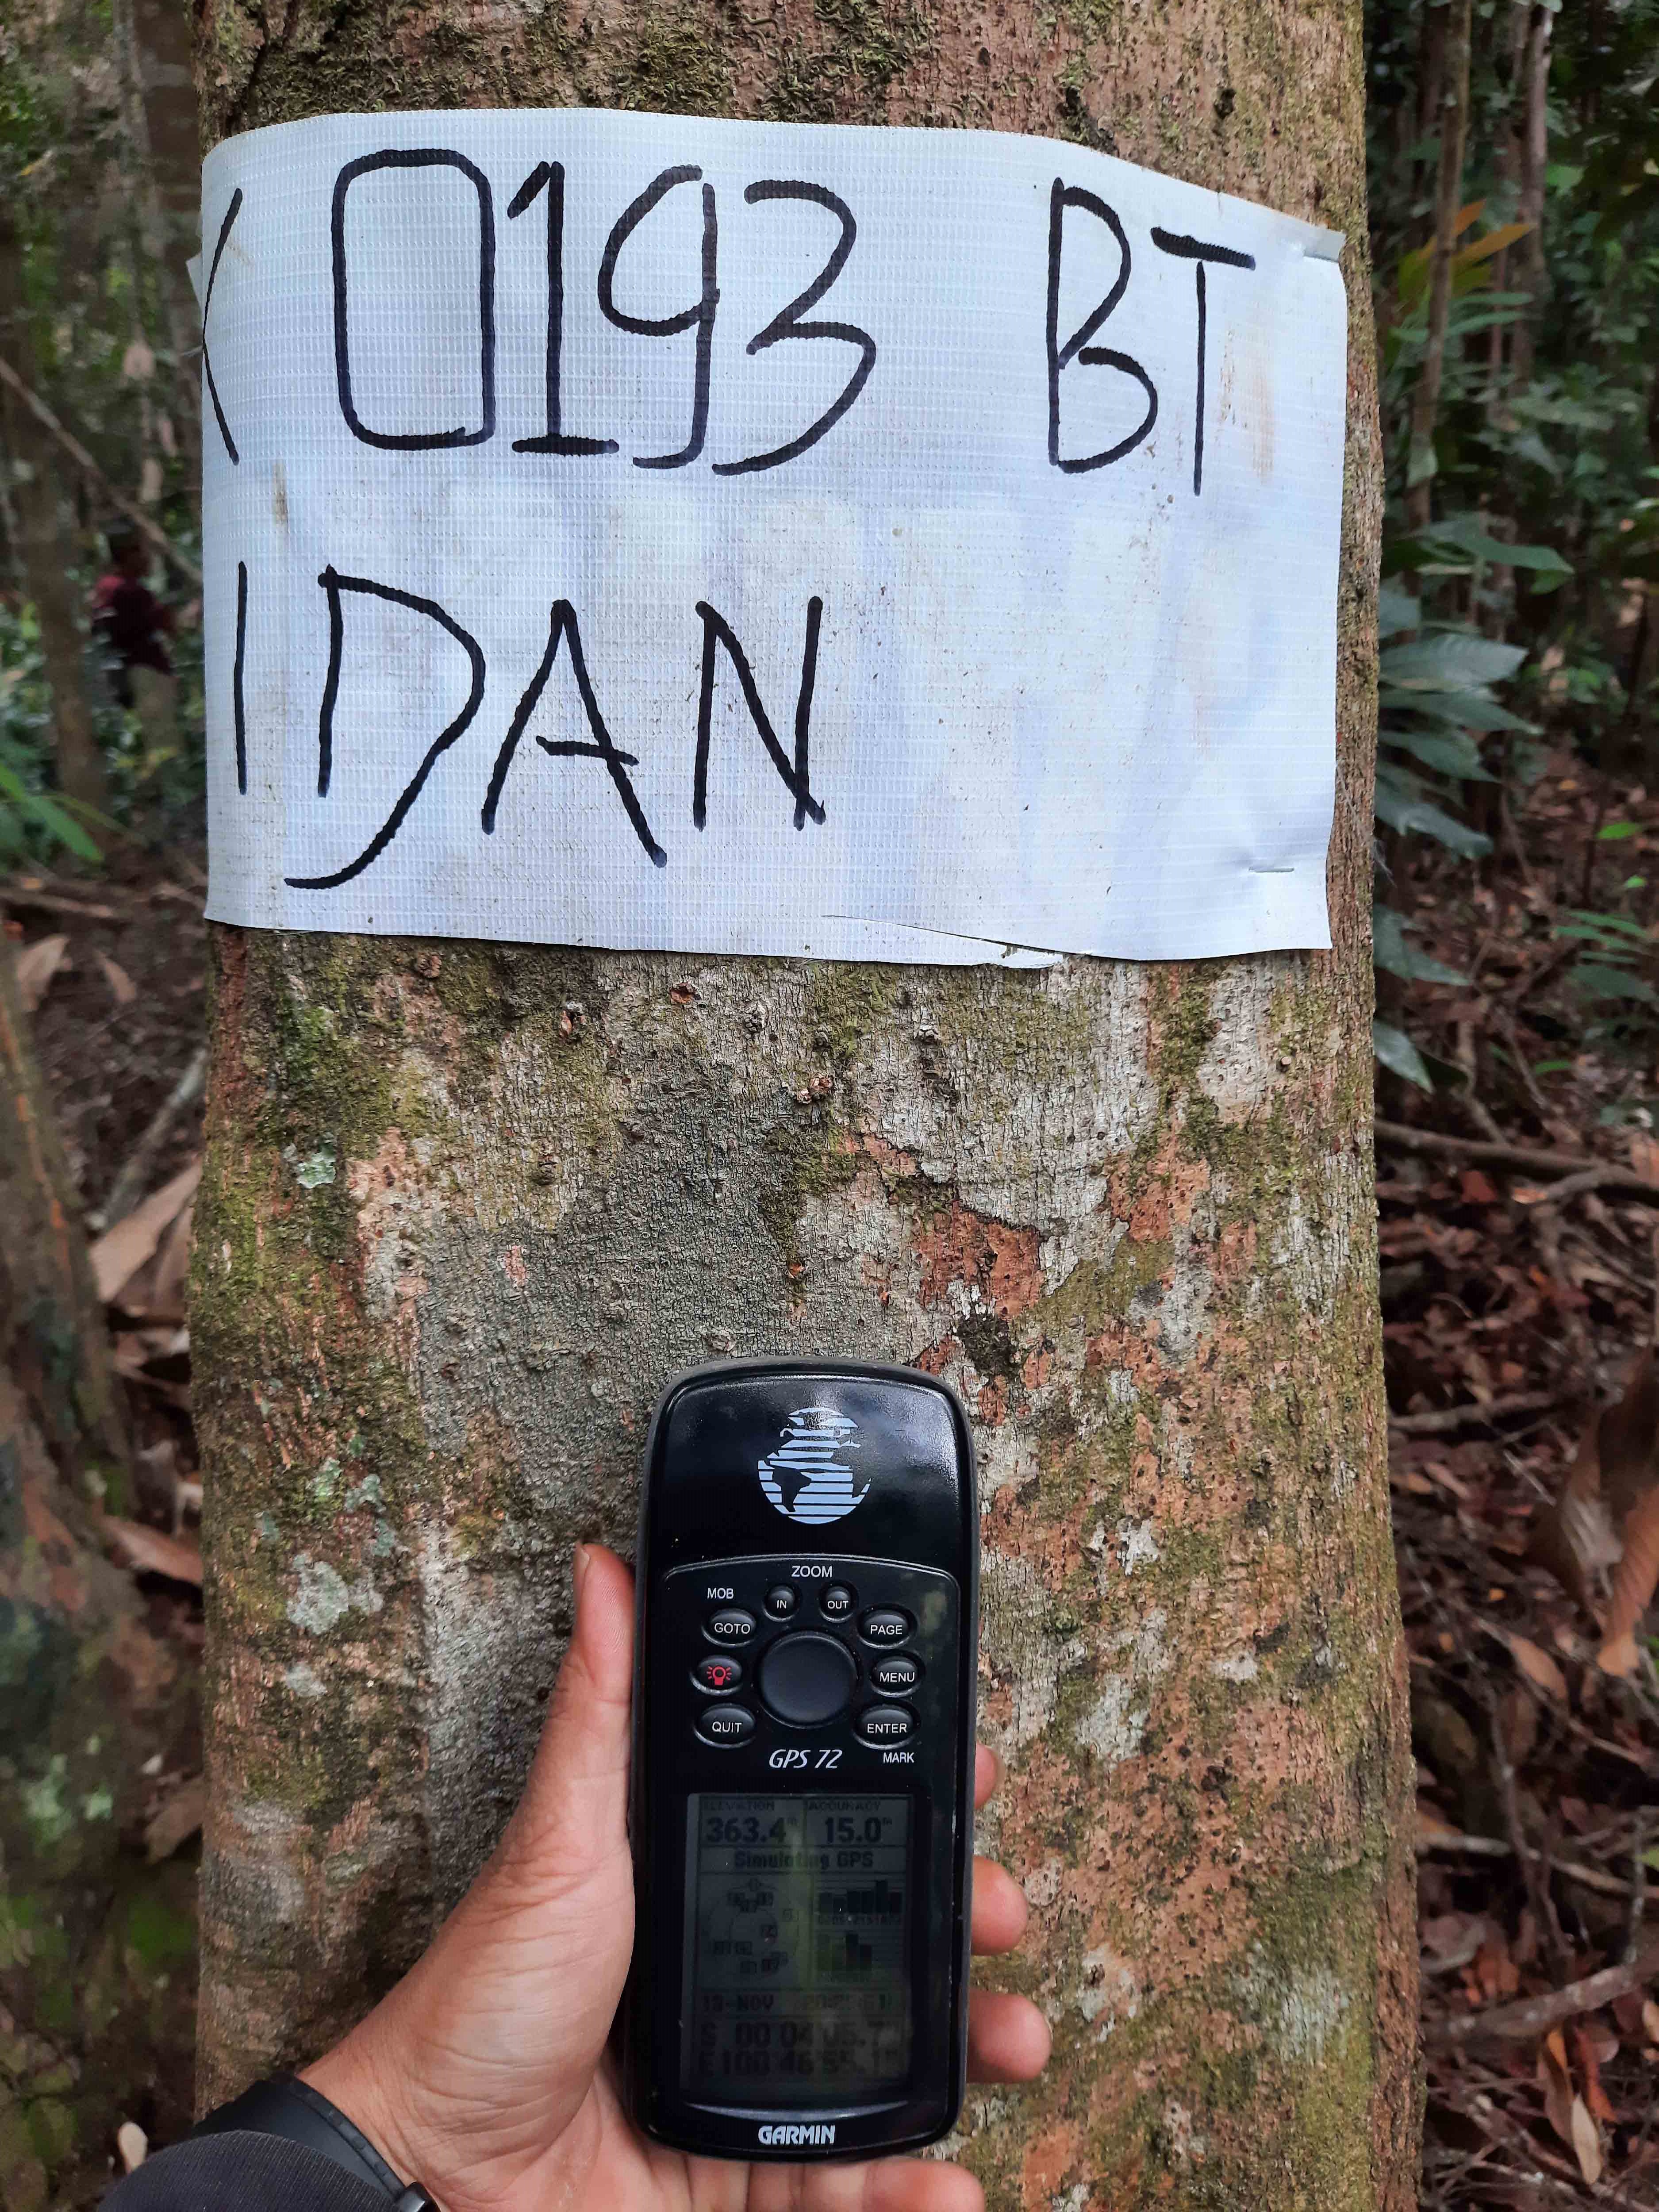 0193 BT
IDAN
ZOOM
MOB
IN
OUT
GOTO
PAGE
MENU
QUIT
ENTER
GPS 72
MARK
ELEVATION ACCURACY
363.4 15.0
Simulating GPS
13-NOV
GARMIN